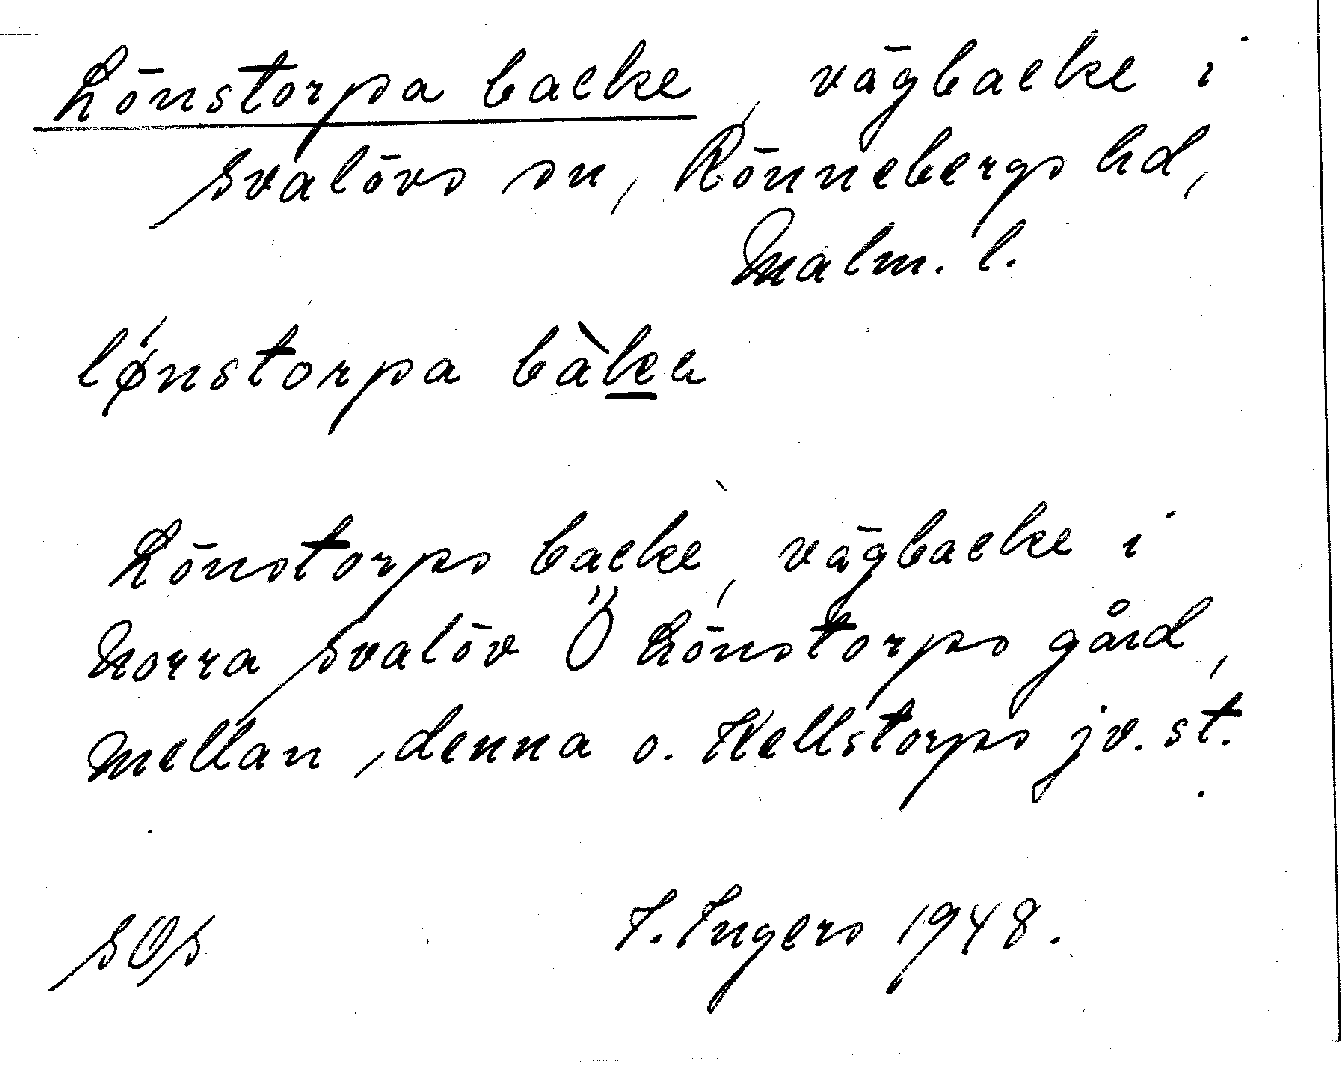 Lönstorpa backe, vägbacke i
Svalövs sn, Rönnebergs hd,
Malm. l.
lǿnstorpa bàka
Lönstorps backe, vägbacke i
Norra Svalöv Ö Lönstorps gård,
mellan denna o. Kellstorps jv. st.
SOS I. Ingers 1948.